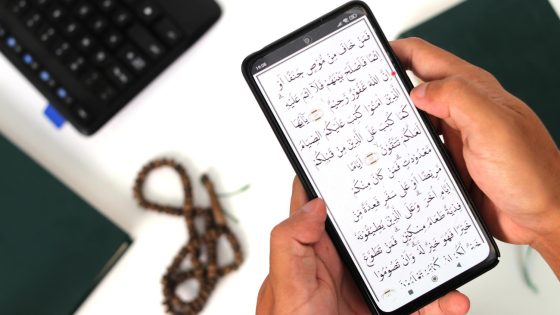 19:08
فَمَنْ خَافَ مِنْ مُوصٍ جَنَفًا أَوْ
إِثْمًا فَأَصْلَحَ بَيْنَهُمْ فَلَا إِثْمَ عَلَيْهِ
إِنَّ اللَّهَ غَفُورٌ رَحِيمٌ يَٰأَيُّهَا
الَّذِينَ اٰمَنُوا كُتِبَ عَلَيْكُمُ الصِّيَامُ
كَمَا كُتِبَ عَلَى الَّذِينَ مِنْ قَبْلِكُمْ
لَعَلَّكُمْ تَتَّقُونَ أَيَّامًا
مَعْدُودَٰتٍ فَمَنْ كَانَ مِنْكُمْ
مَرِيضًا أَوْ عَلَىٰ سَفَرٍ فَعِدَّةٌ مِنْ
أَيَّامٍ أُخَرَ وَعَلَى الَّذِينَ يُطِيقُونَهُ
فِدْيَةٌ طَعَامُ مِسْكِينٍ فَمَنْ تَطَوَّعَ
خَيْرًا فَهُوَ خَيْرٌ لَهُ وَأَنْ تَصُومُوا
خَيْرٌ لَكُمْ إِنْ كُنْتُمْ تَعْلَمُونَ